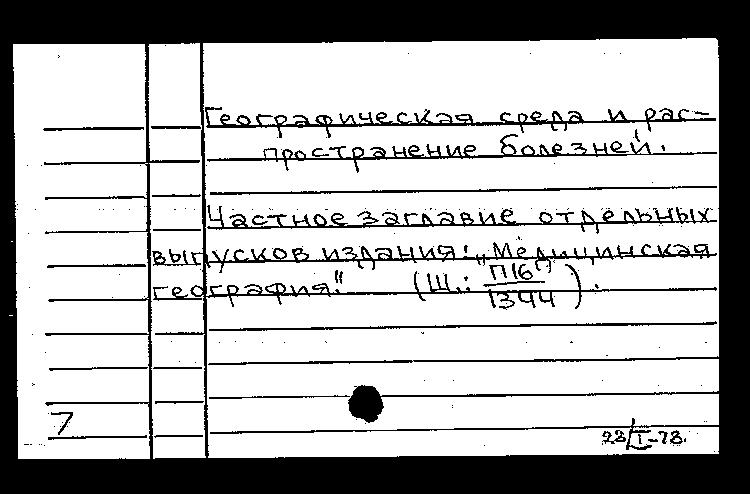 Географическая среда и рас-
пространение болезней.
Частное заглавие отдельных
выпусков издания: „Медицинская
география." (Ш.: П16/1344).
7
23/I-73.